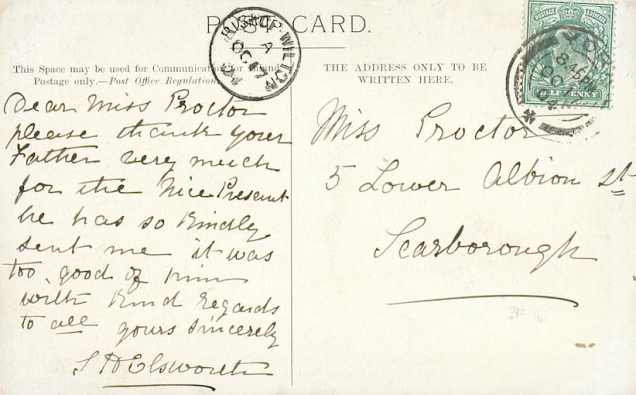 POST CARD.
This Space may be used for Communication for Inland
Postage only.—Post Office Regulation.
THE ADDRESS ONLY TO BE
WRITTEN HERE.
BISHOP WILTON
A
OC 17
Dear Miss Proctor
please thank your
Father very much
for the Nice Present
he has so Kindly
sent me it was
too good of him
with Kind Regards
to all yours sincerely
S H Elsworth
Miss Proctor
5 Lower Albion St
Scarborough